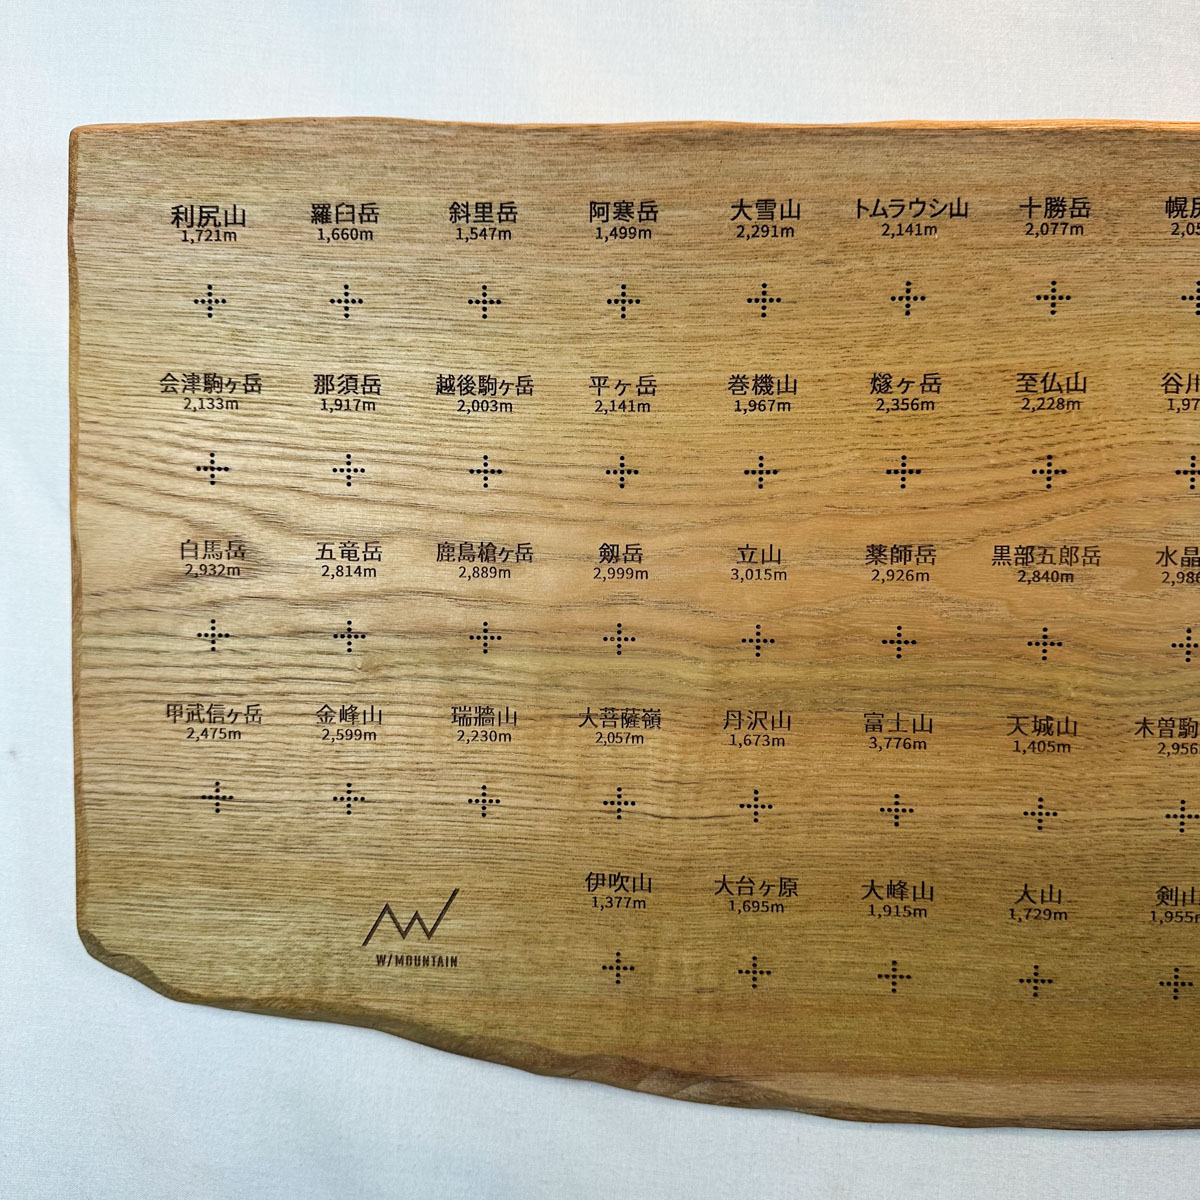 利尻山 羅臼岳 斜里岳 阿寒岳 大雪山 トムラウシ山 十勝岳 幌尻
1,721m 1,660m 1,547m 1,499m 2,291m 2,141m 2,077m 2,05
会津駒ヶ岳 那須岳 越後駒ヶ岳 平ヶ岳 巻機山 燧ヶ岳 至仏山 谷川
2,133m 1,917m 2,003m 2,141m 1,967m 2,356m 2,228m 1,97
白馬岳 五竜岳 鹿島槍ヶ岳 剱岳 立山 薬師岳 黒部五郎岳 水晶
2,932m 2,814m 2,889m 2,999m 3,015m 2,926m 2,840m 2,986
甲武信ヶ岳 金峰山 瑞牆山 大菩薩嶺 丹沢山 富士山 天城山 木曽駒
2,475m 2,599m 2,230m 2,057m 1,673m 3,776m 1,405m 2,956
伊吹山 大台ヶ原 大峰山 大山 剣山
1,377m 1,695m 1,915m 1,729m 1,955m
W/MOUNTAIN